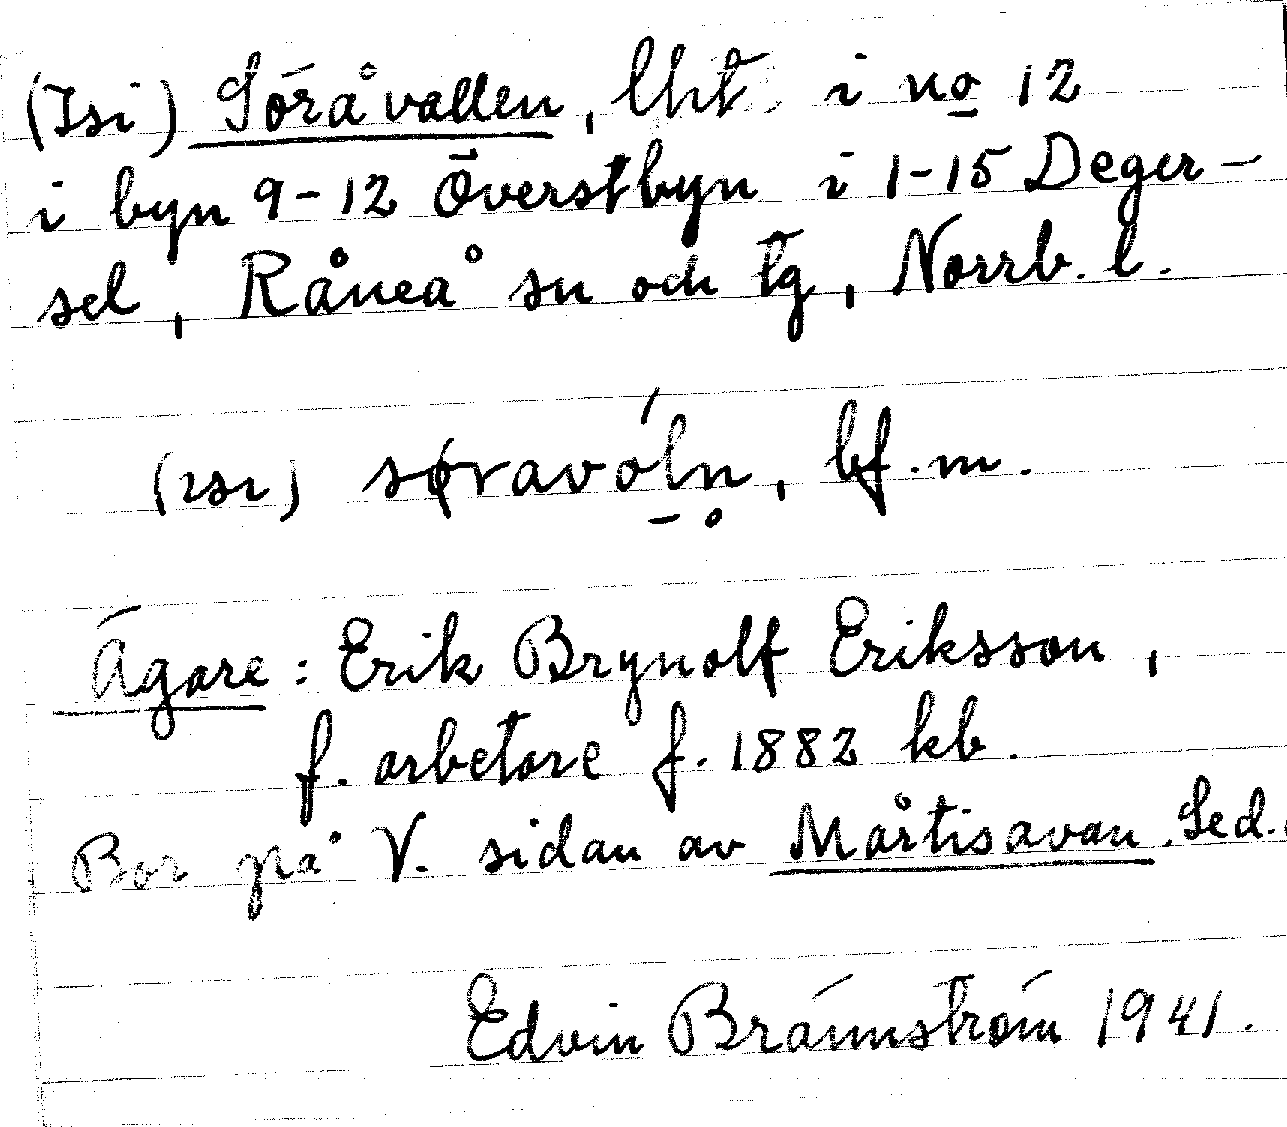 (Isi) Söråvallen, lht. i no 12
i byn 9-12 Överstbyn i 1-15 Deger-
sel, Råneå sn och tg, Norrb. l.
(ɪsɪ) søravóln̥, bf. m.
Ägare: Erik Brynolf Eriksson,
f. arbetare f. 1882 kb.
Bor på V. sidan av Mårtisavan. Sed.
Edvin Brännström 1941.